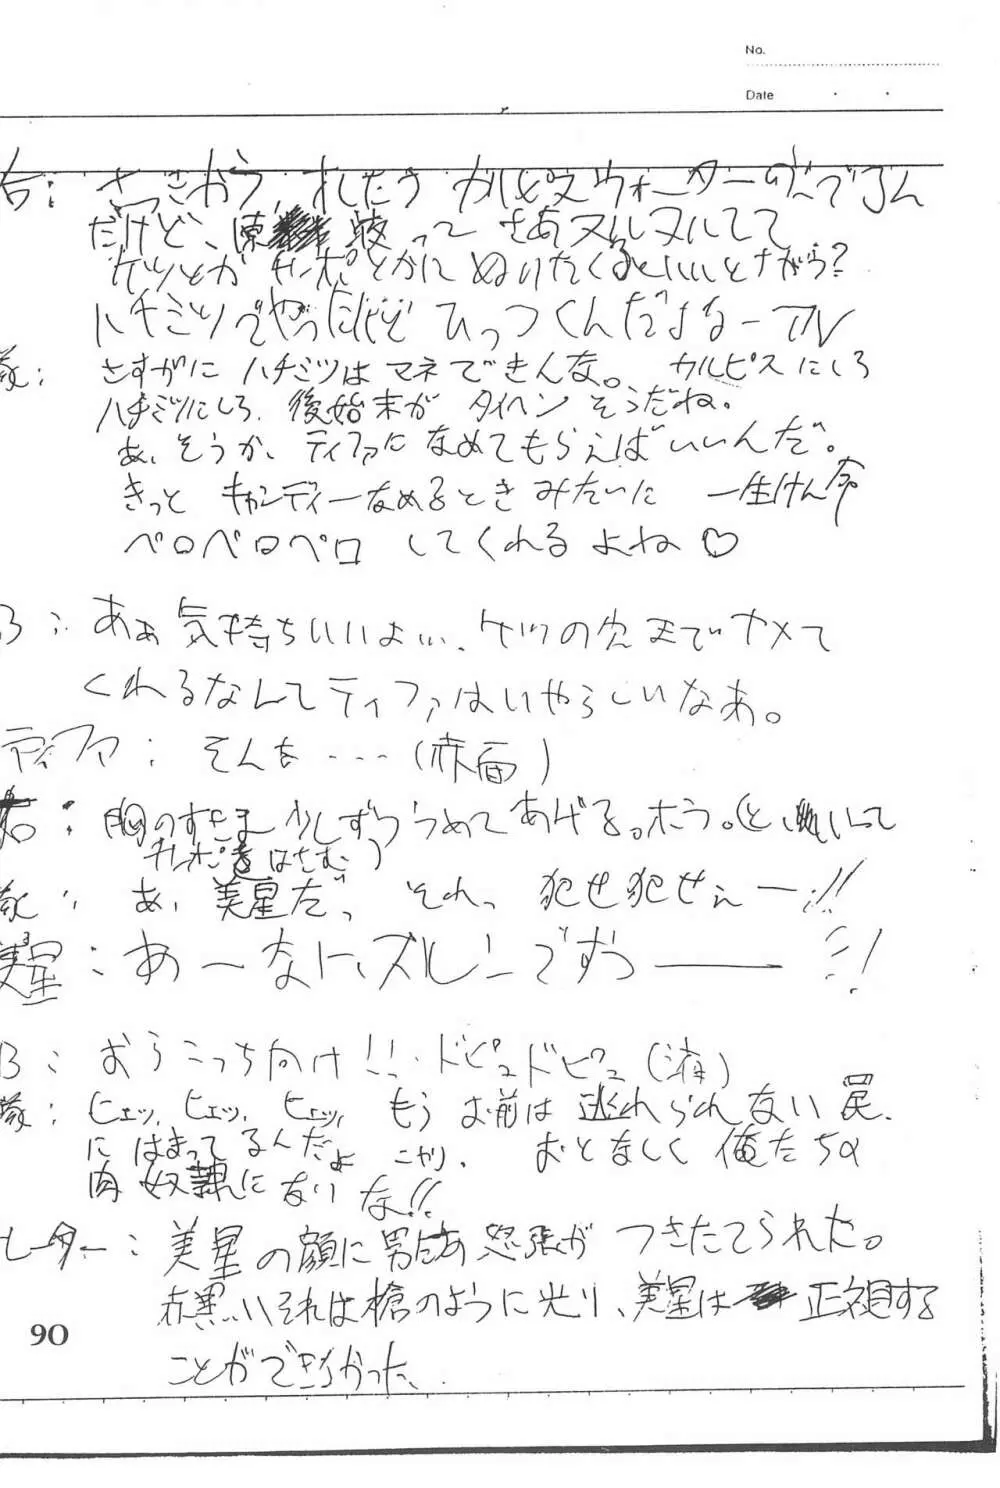 No.
Date
台: さっきから、れたろう カルピスウォーターのんでるん
だけど、 液って さあヌルヌルしてて
ケツとか チンポとかに ぬりたくるといいとながら?
ハチミツでやったけど ひっつくんだよなー
さすがに ハチミツは マネできんな。 カルピスにしろ
ハチミツにしろ、後始末が タイヘン そうだね。
あ、そうか、ティファに なめてもらえば いいんだ。
きっと キャンディーなめるとき みたいに 一生けん命
ペロペロペロ してくれる よね ♡
ろ: あぁ 気持ちいいよぉ、ケツの穴までナメて
くれるなんて ティファはいやらしいなあ。
ティファ: そんな・・・・(赤面)
右: 胸のすきま 少しずつ うめて あげる。ホラ。(と、いって
チンポをはさむ)
あ、美星だっ それっ 犯せ犯せぇー!!
美星: あーなト、ズルーンですっ――!!
ろ: おらこっち向け!! ドピュドピュ (液)
ヒェッ、ヒェッ、ヒェッ、 もう お前は 逃れられない 罠
に はまってるんだよ こやり. おとなしく 俺たちの
肉 奴隷に なりな!!
レーター: 美星の顔に男たちの 怒張が つきたてられた。
赤黒いそれは槍のように光り、美星は 正視する
ことができなかった。
90